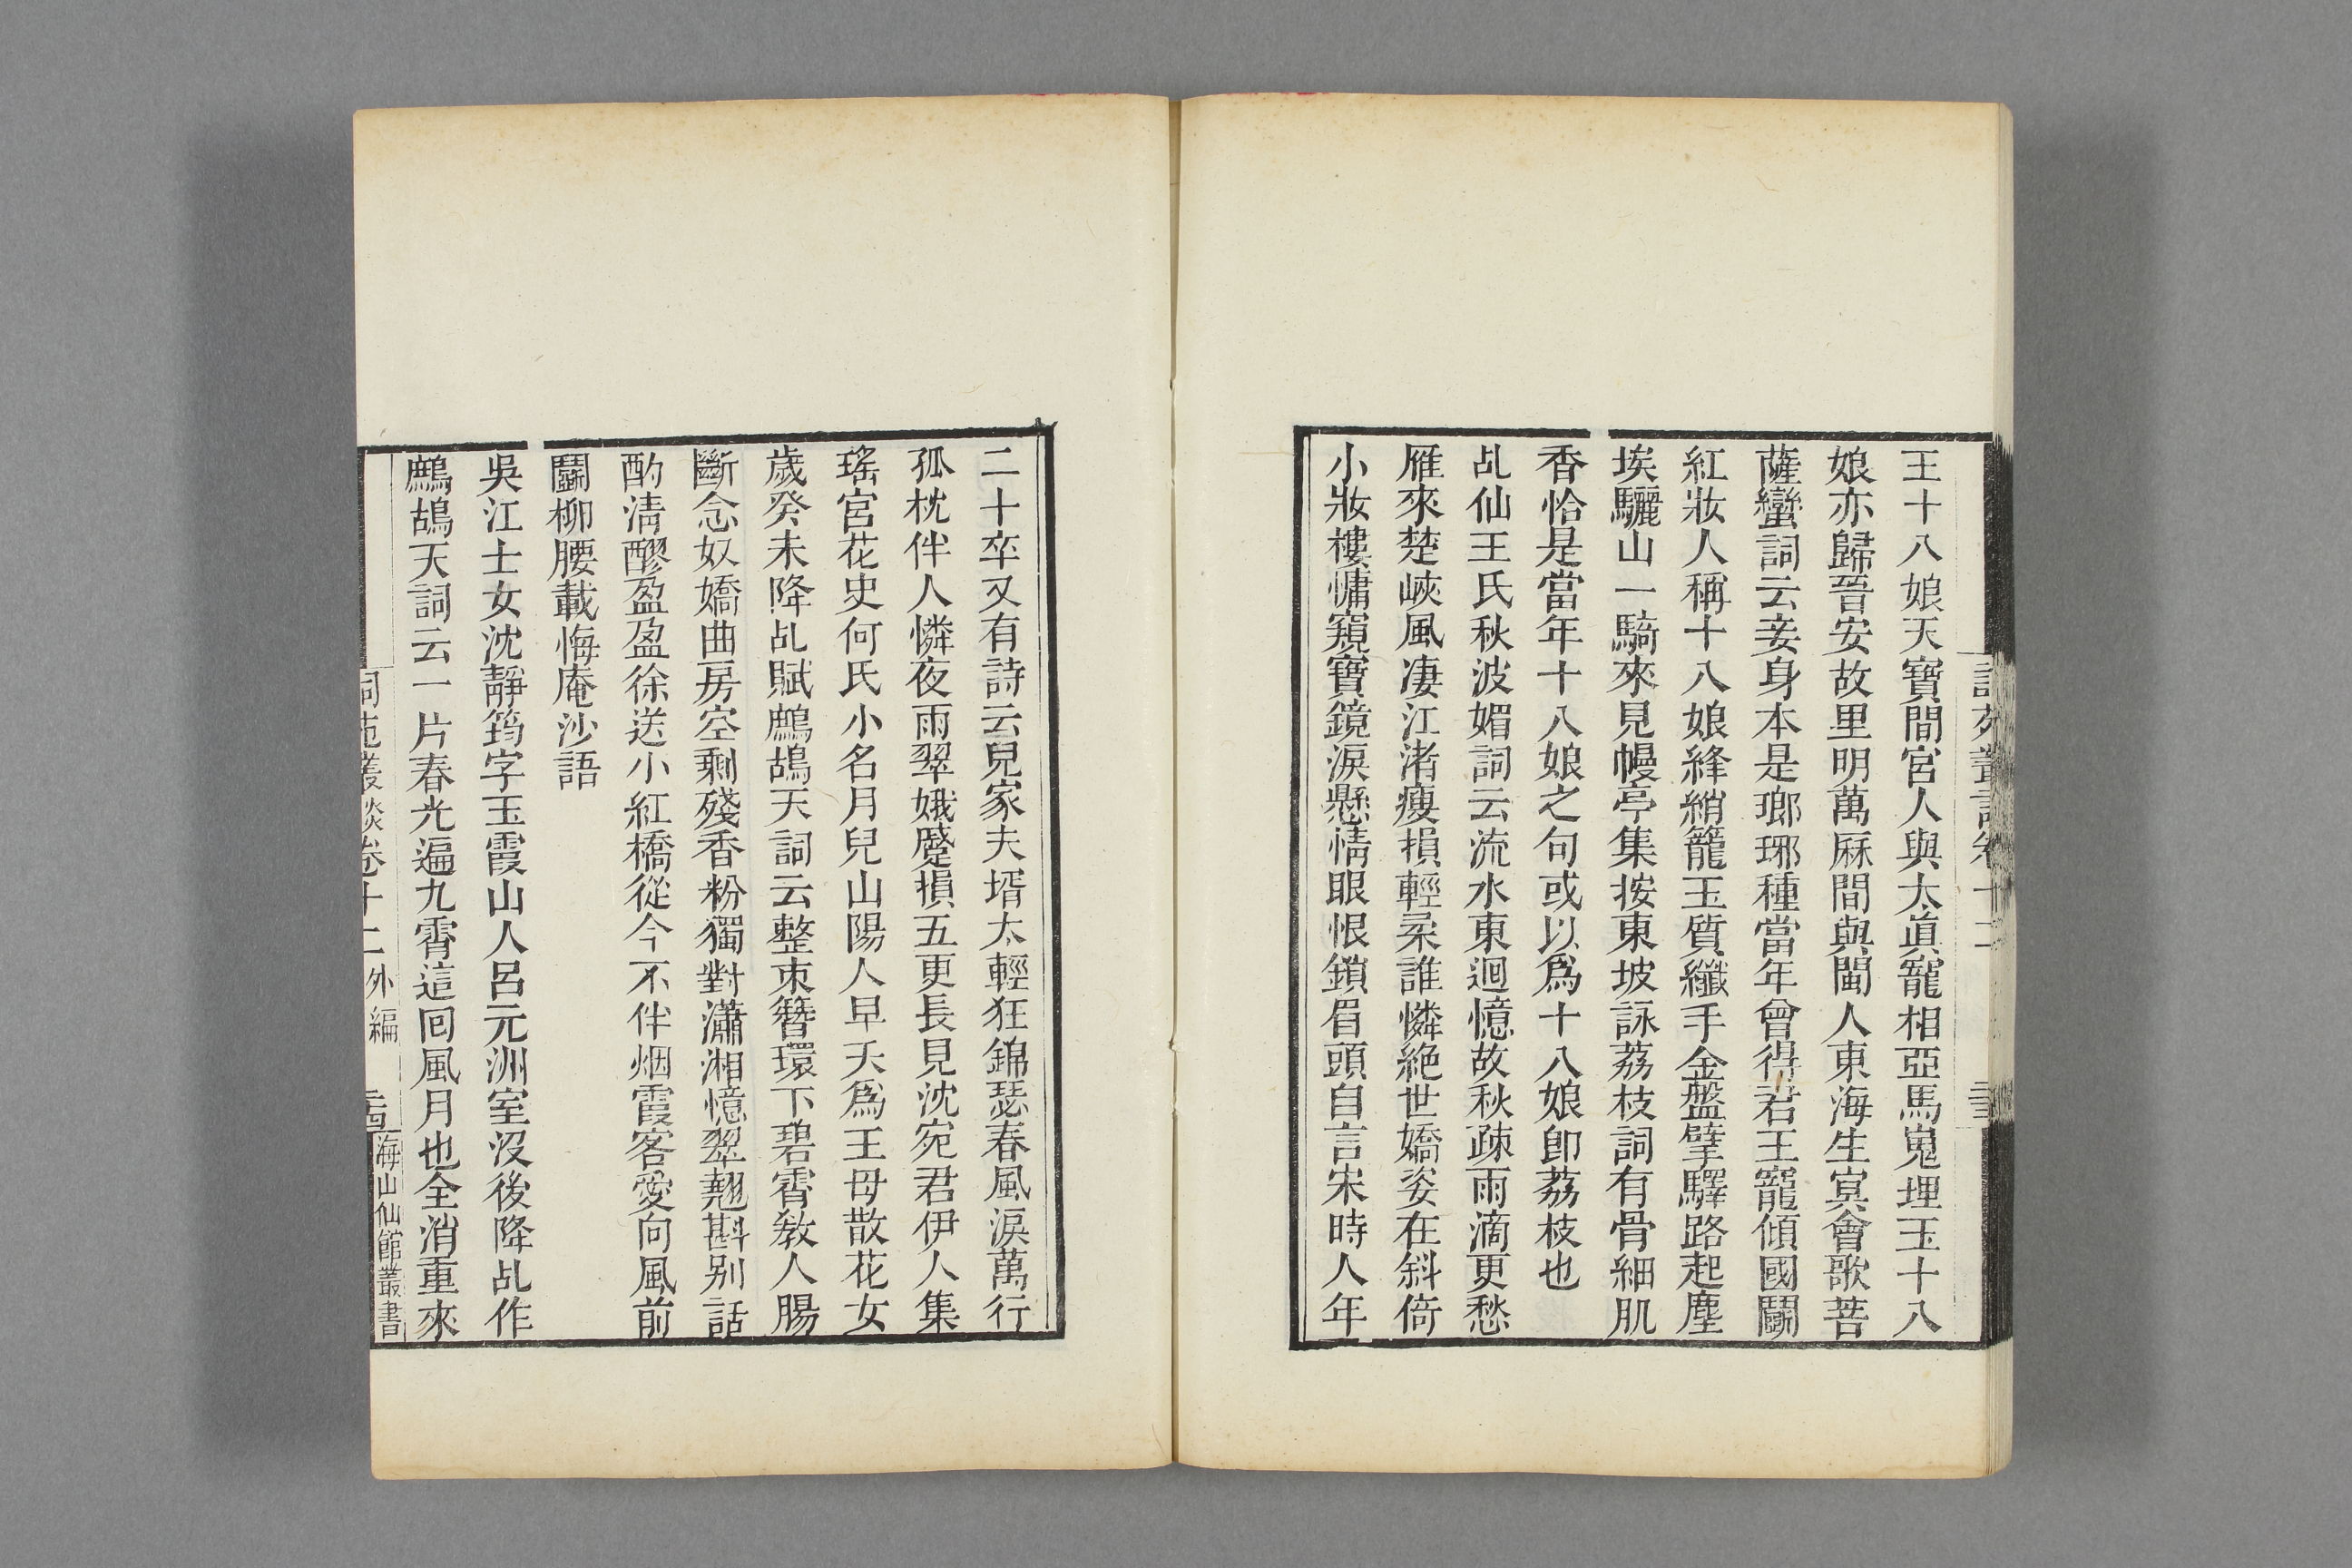 王十八娘天寶間宮人與太眞寵相亞馬嵬埋玉十八
娘亦歸晉安故里明萬厤間與閩人東海生冥會歌菩
薩蠻詞云妾身本是瑯琊種當年曾得君王寵傾國鬭
紅妝人稱十八娘絳綃籠玉質纖手金盤擘驛路起塵
埃驪山一騎來見幔亭集按東坡詠荔枝詞有骨細肌
香恰是當年十八娘之句或以爲十八娘卽荔枝也
乩仙王氏秋波媚詞云流水東迴憶故秋疎雨滴更愁
雁來楚峽風凄江渚瘦損輕柔誰憐絶世嬌姿在斜倚
小妝樓慵窺寶鏡淚懸情眼恨鎖眉頭自言宋時人年
二十卒又有詩云兒家夫壻太輕狂錦瑟春風淚萬行
孤枕伴人憐夜雨翠娥蹙損五更長見沈宛君伊人集
瑤宮花史何氏小名月兒山陽人早夭爲王母散花女
歲癸未降乩賦鷓鴣天詞云整束簪環下碧霄敎人腸
斷念奴嬌曲房空剩殘香粉獨對瀟湘憶翠翹斟別話
酌淸醪盈盈徐送小紅橋從今不伴烟霞客愛向風前
鬭柳腰載悔庵沙語
吳江士女沈靜筠字玉霞山人呂元洲室沒後降乩作
鷓鴣天詞云一片春光遍九霄這回風月也全消重來
詞苑叢談卷十二 外編
海山仙館叢書